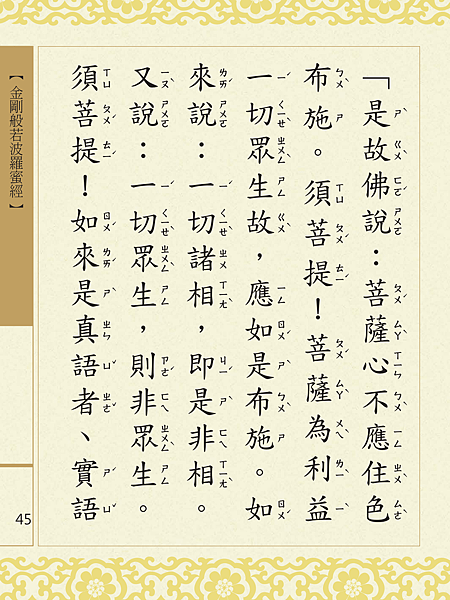 「是故佛說：菩薩心不應住色
布施。須菩提！菩薩為利益
一切眾生故，應如是布施。如
來說：一切諸相，即是非相。
又說：一切眾生，則非眾生。
須菩提！如來是真語者、實語
【金剛般若波羅蜜經】
45